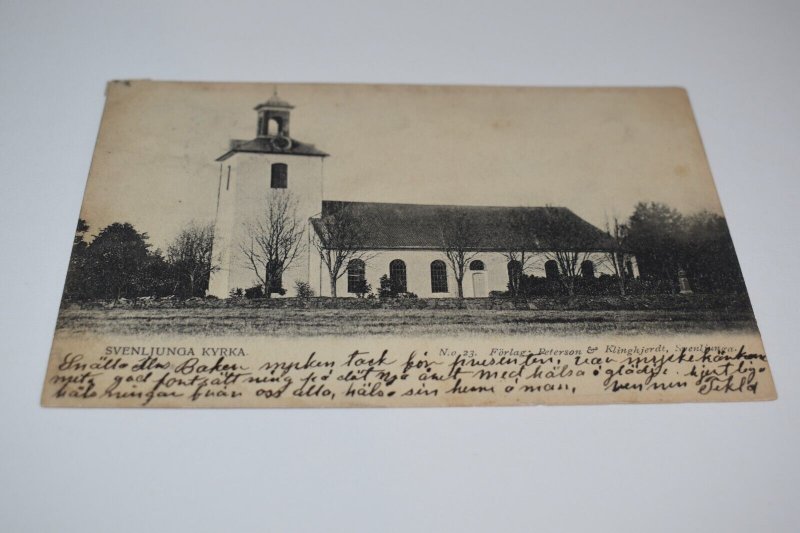 SVENLJUNGA KYRKA.
No 23. Förlag: Peterson & Klinghjerdt, Svenljunga.
Snälla Baken mycken tack för presenten, var mycke kän
god fortsättning på det nya året med hälsa o glädje. hjertlig
hälsningar från oss alla, hälsa o man, vennen Tekla